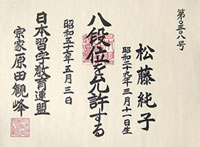 第三〇八号
松藤純子
昭和三十九年三月十一日生
八段位を允許する
昭和五十六年五月三日
日本習字教育連盟
宗家原田観峰